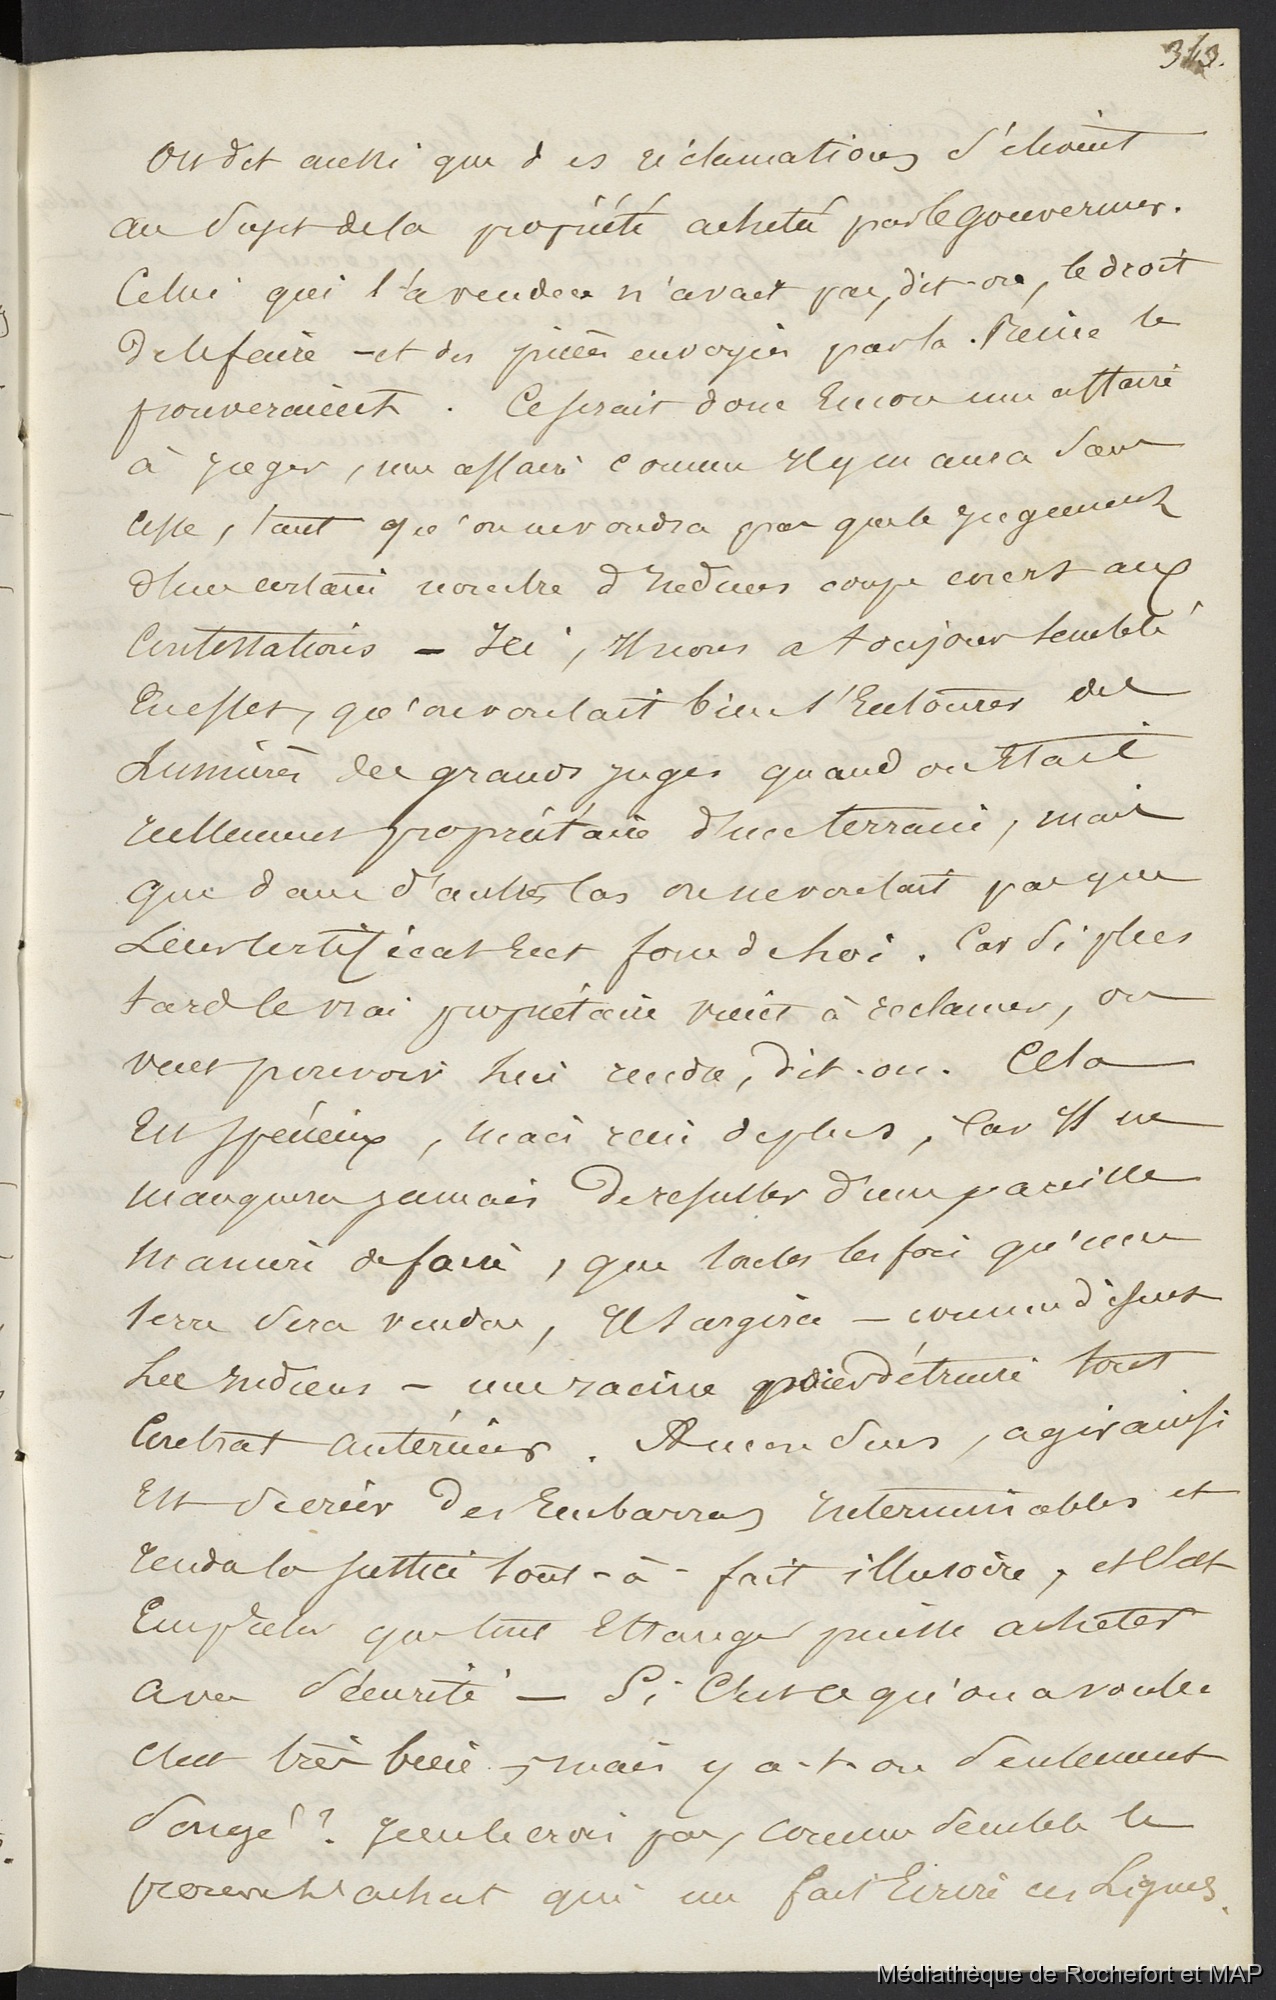 343.
On dit aussi que des réclamations s'élèvent
au sujet de la propriété achetée par le gouverneur.
Celui qui l'a vendue n'avait pas, dit-on, le droit
de le faire - et des pièces envoyées par la Reine le
prouveraient. Ce serait donc encore une affaire
à juger, une affaire comme il y en aura sans
cesse, tant qu'on ne voudra pas que le jugement
d'un certain nombre d'Indiens coupe court aux
Contestations - Ici, Il nous a toujours semblé
En effet, qu'on voulait bien s'Entourer des
Lumières des grands juges quand on Etait
réellement propriétaire d'un terrain, mais
que dans d'autres cas on ne voulait pas que
Leur certificat eut force de loi. Car si plus
tard le vrai propriétaire vient à réclamer, on
veut pouvoir lui rendre, dit-on. Cela
Est spécieux, mais rien de plus, Car Il ne
manquera jamais de résulter d'une pareille
manière de faire, que toutes les fois qu'une
terre sera vendue, Il surgira - comme disent
Les Indiens - une racine pour détruire tout
Contrat antérieur. A mon sens, agir ainsi
Est se créer des Embarras interminables et
rendre la justice tout-à-fait illusoire, et C'est
Empêcher que tout Etranger puisse acheter
avec sécurité - Si C'est ce qu'on a voulu
c'est très bien, mais y a-t-on seulement
songé? Je ne le crois pas, comme semble le
prouver l'achat qui me fait Ecrire ces Lignes.
Médiathèque de Rochefort et MAP